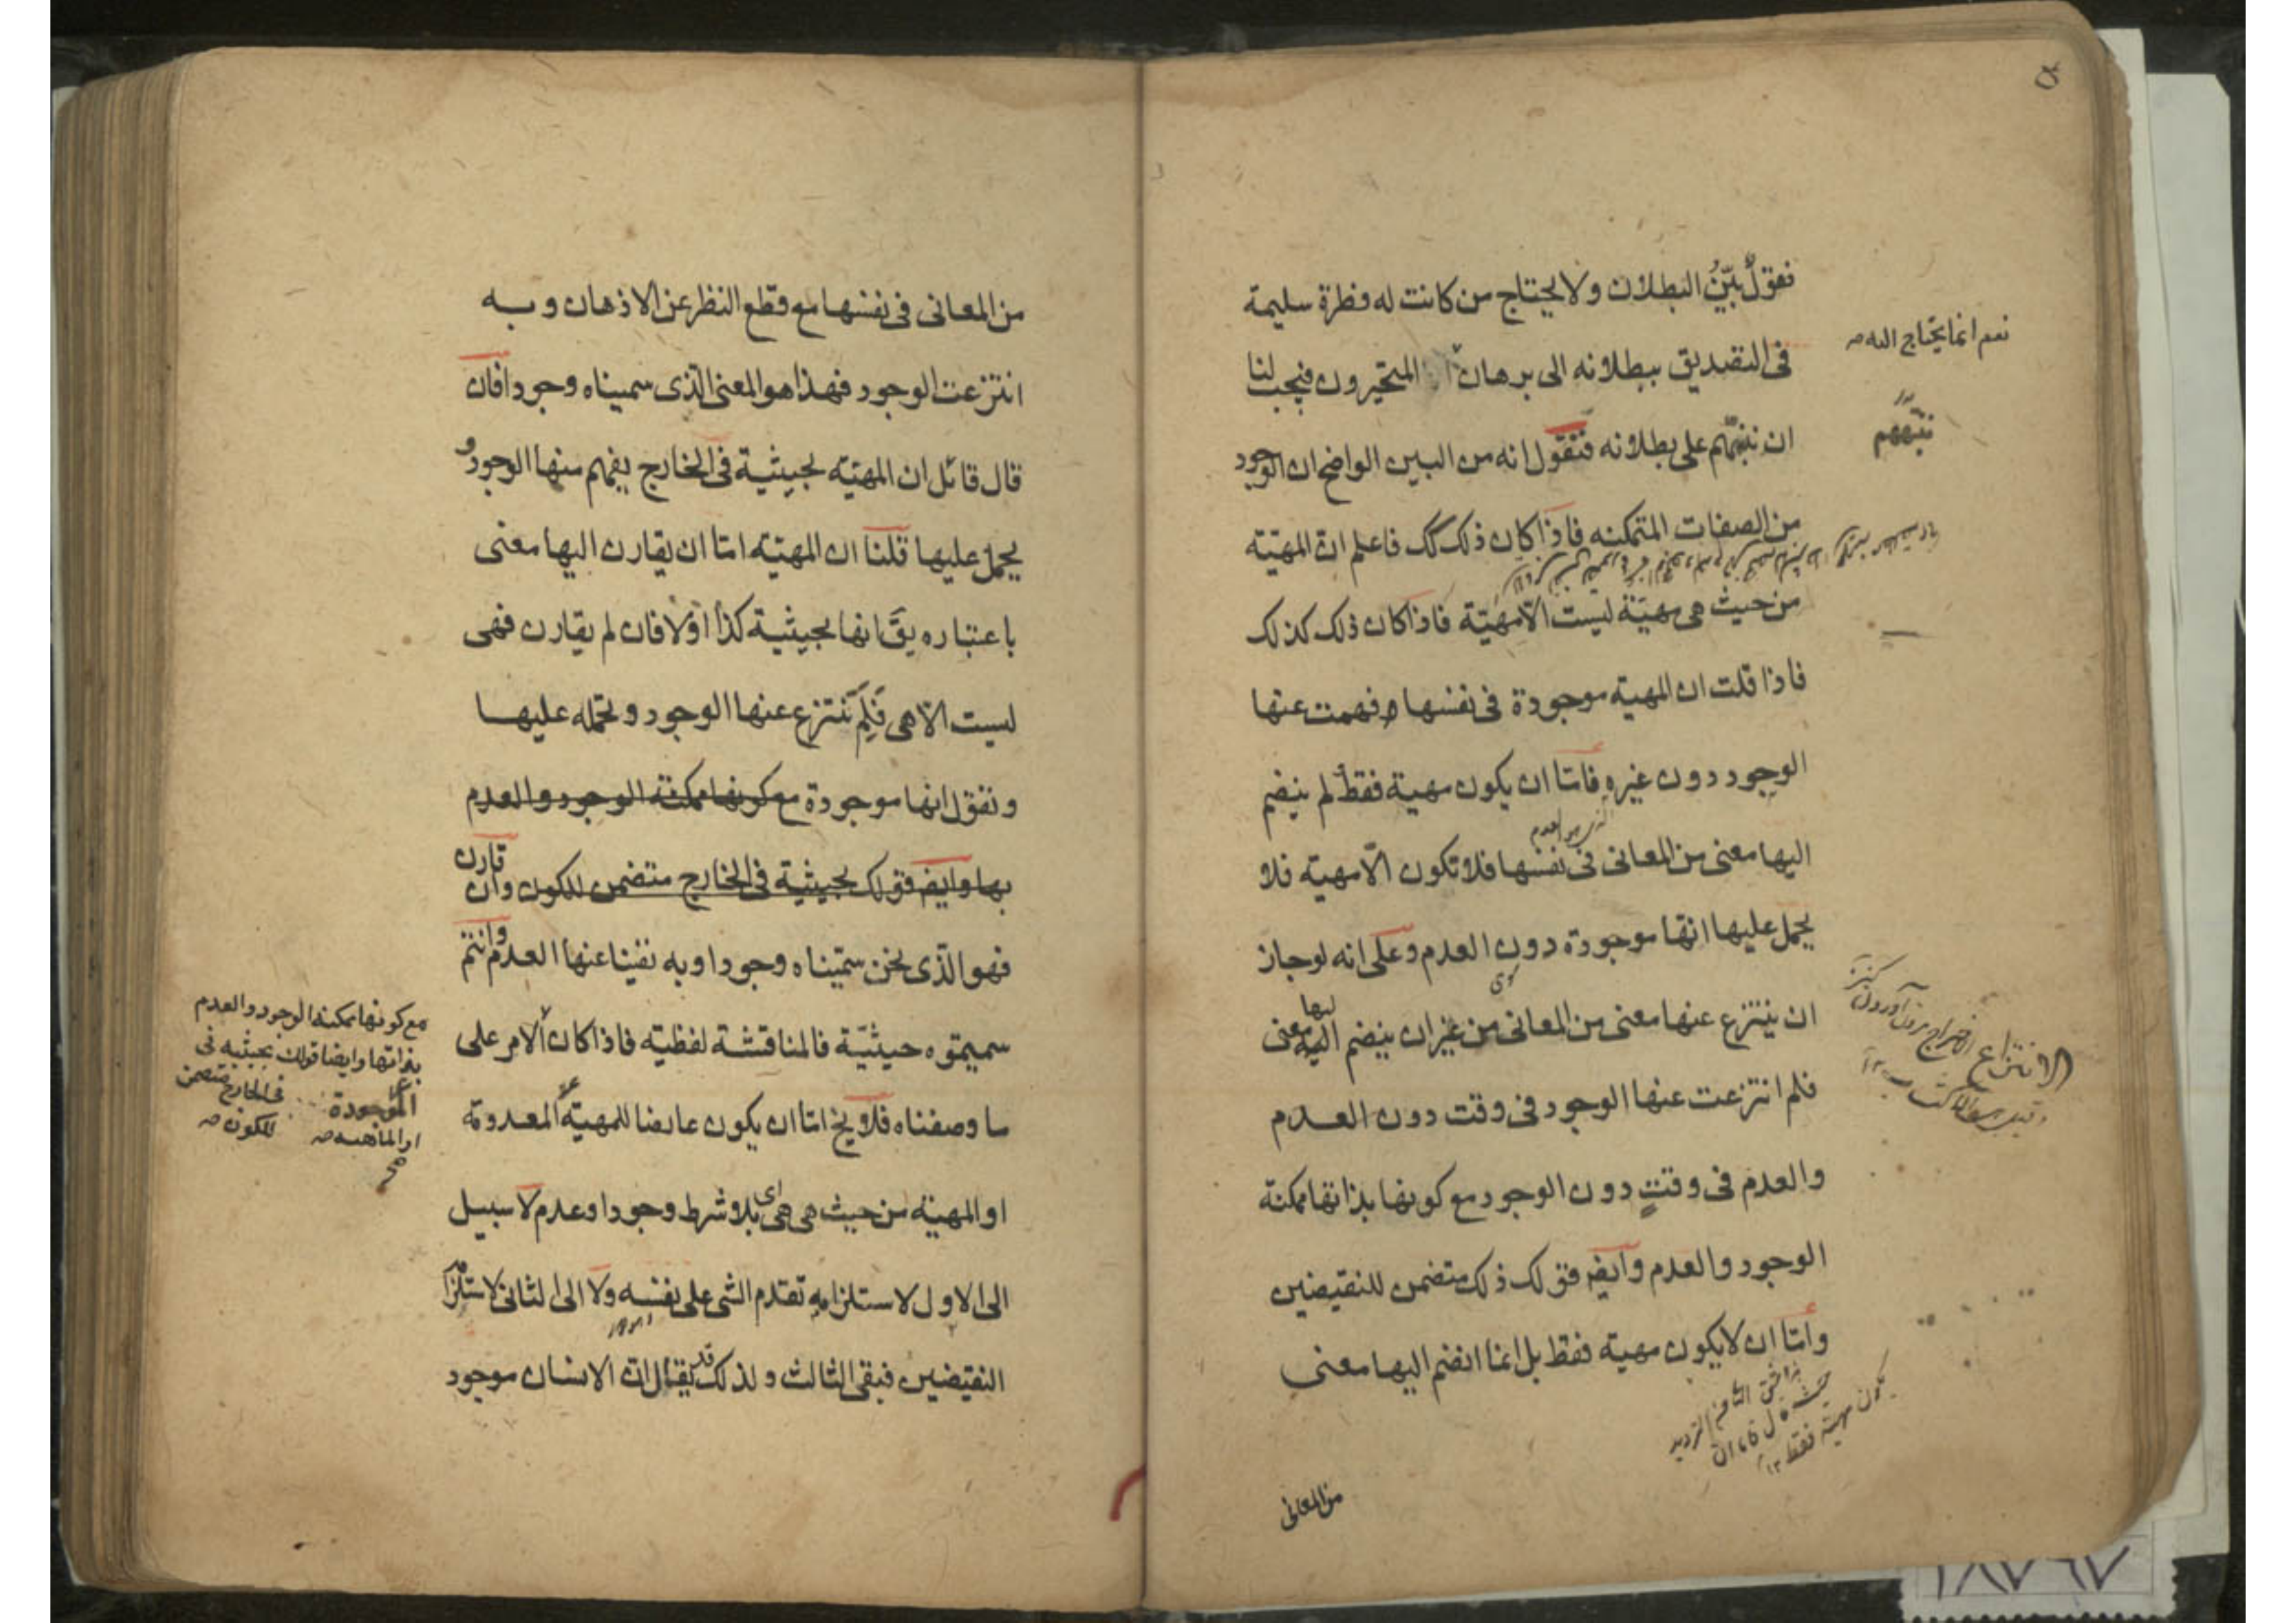 فنقول بيّن البطلان ولا يحتاج من كانت له فطرة سليمة
في التصديق ببطلانه الى برهان المتحيرون فيجب لنا
نعم انما يحتاج اليه صح
ان ننبّههم على بطلانه فنقول انه من البين الواضح ان الوجود
ننبّههم
من الصفات المتمكنه فاذا كان ذلك كك فاعلم ان المهيّة
من حيث هى مهيّة ليست الّا مهيّة فاذا كان ذلك كذلك
فاذا قلت ان المهية موجودة فى نفسها و فهمت عنها
الوجود دون غيره فامّا ان يكون مهية فقط لم ينضم
اليها معنى من المعانى فى نفسها فلا تكون الّا مهية فلا
يحمل عليها انها موجودة دون العدم وعلى انه لو جاز
ان ينتزع عنها معنى من المعانى من غير ان ينضم اليها معنى
سوى
فلم انتزعت عنها الوجود فى وقت دون العدم
الانتزاع
والعدم فى وقتٍ دون الوجود مع كونها بذاتها ممكنة
الوجود والعدم وايضه فقولك ذلك متضمن للنقيضين
وامّا ان لا يكون مهية فقط بل انما انضم اليها معنى
يكون مهية فقط ١٢
من المعانى
من المعانى فى نفسها مع قطع النظر عن الاذهان و به
انتزعت الوجود فهذا هو المعنى الّذى سميناه وجودا فان
قال قائل ان المهيّه بحيثية فى الخارج يفهم منها الوجود و
يحمل عليها قلنا ان المهيّه امّا ان يقارن اليها معنى
باعتباره يقّ انها بحيثية كذا اوّلا فان لم يقارن فهى
ليست الّا هى فَلِمَ نَنتزع عنها الوجود و نحمله عليها
و نقول انها موجودة مع كونها ممكنة الوجود والعدم
بها وايضه فقولك بحيثية فى الخارج متضمن للكون وان قارن
فهو الّذى نحن سمّيناه وجودا وبه نفينا عنها العدم وانتم
سميتموه حيثيّة فالمناقشة لفظيّه فاذا كان الامر على
مع كونها ممكنة الوجود والعدم
بذاتها وايضا قولك بحيثيه فى
فى الخارج متضمن
للكون صح
الموجودة
او الماهيه صح
ما وصفناه فلا يخ امّا ان يكون عارضا للمهيّة المعدومة
او المهيّه من حيث هى هى اى بلا شرط وجود او عدم لا سبيل
الى الاول لاستلزامه تقدم الشى على نفسه ولا الى الثانى لاستلزام
النقيضين فبقى الثالث ولذلك قد يقال ان الانسان موجود